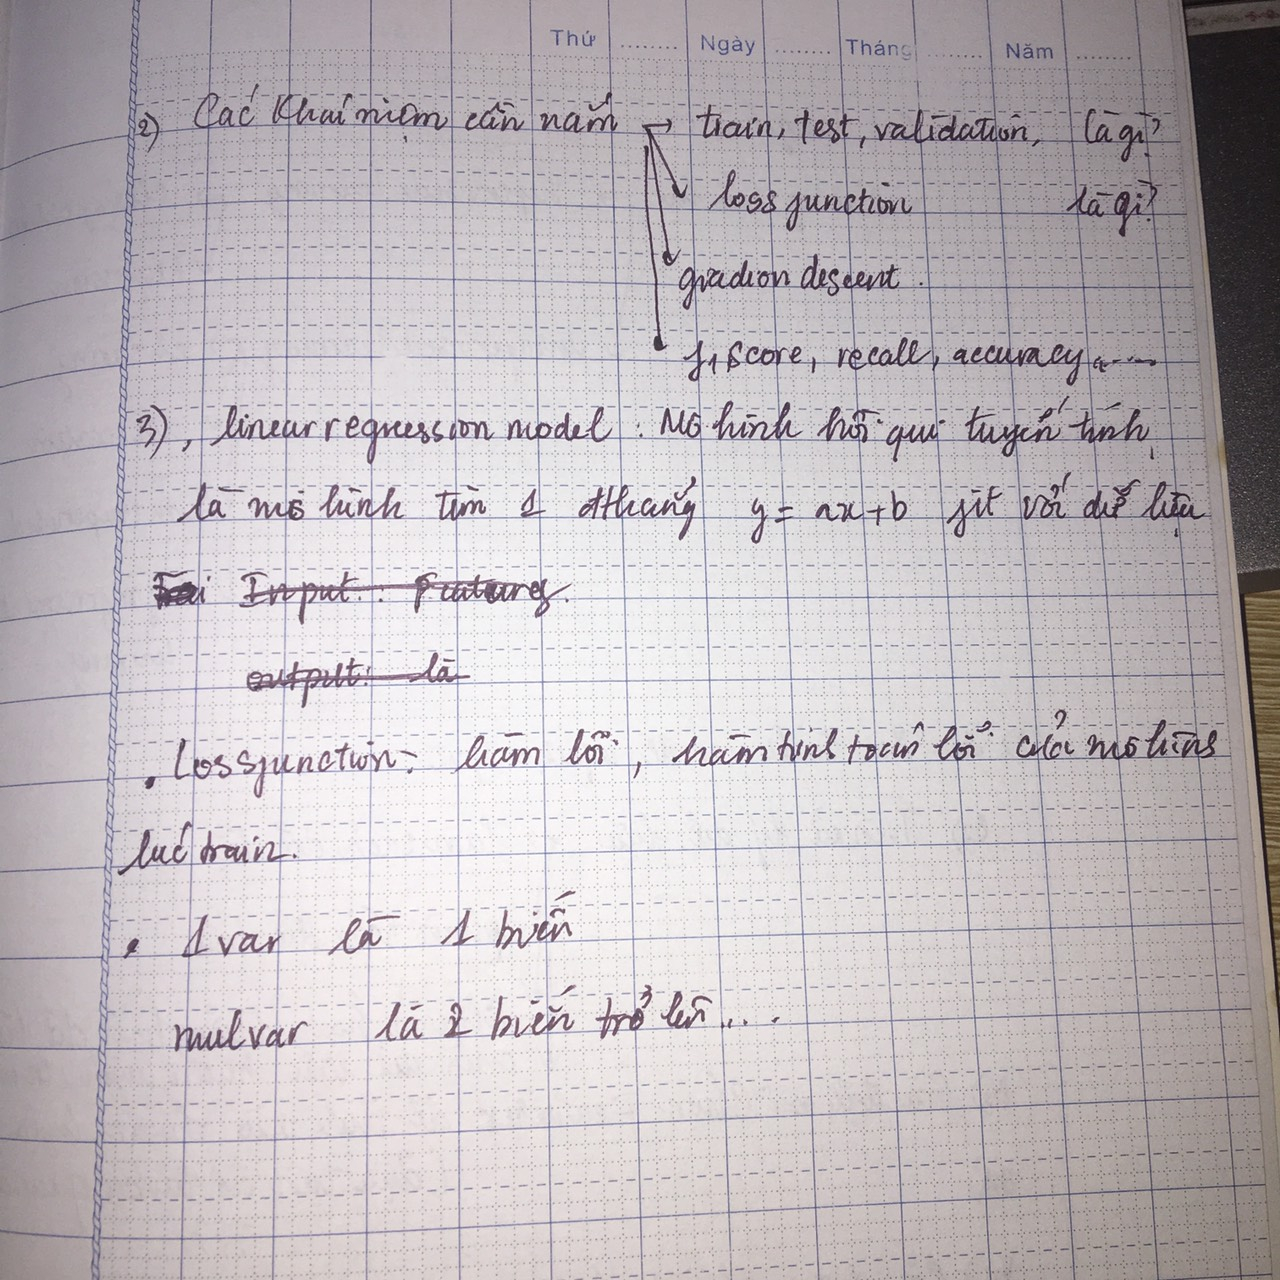 Thứ ........ Ngày ........ Tháng ........ Năm ........
2) Các khái niệm cần nắm → train, test, validation, là gì?
loss function là gì?
gradion descent.
f1 score, recall, accuracy, ....
3), linear regression model : Mô hình hồi qui tuyến tính,
là mô hình tìm 1 đthẳng y = ax+b fit với dữ liệu
Input : Features.
output: là
. Loss function: hàm lỗi, hàm tính toán lỗi của mô hình
lúc train.
. 1 var là 1 biến
mulvar là 2 biến trở lên....